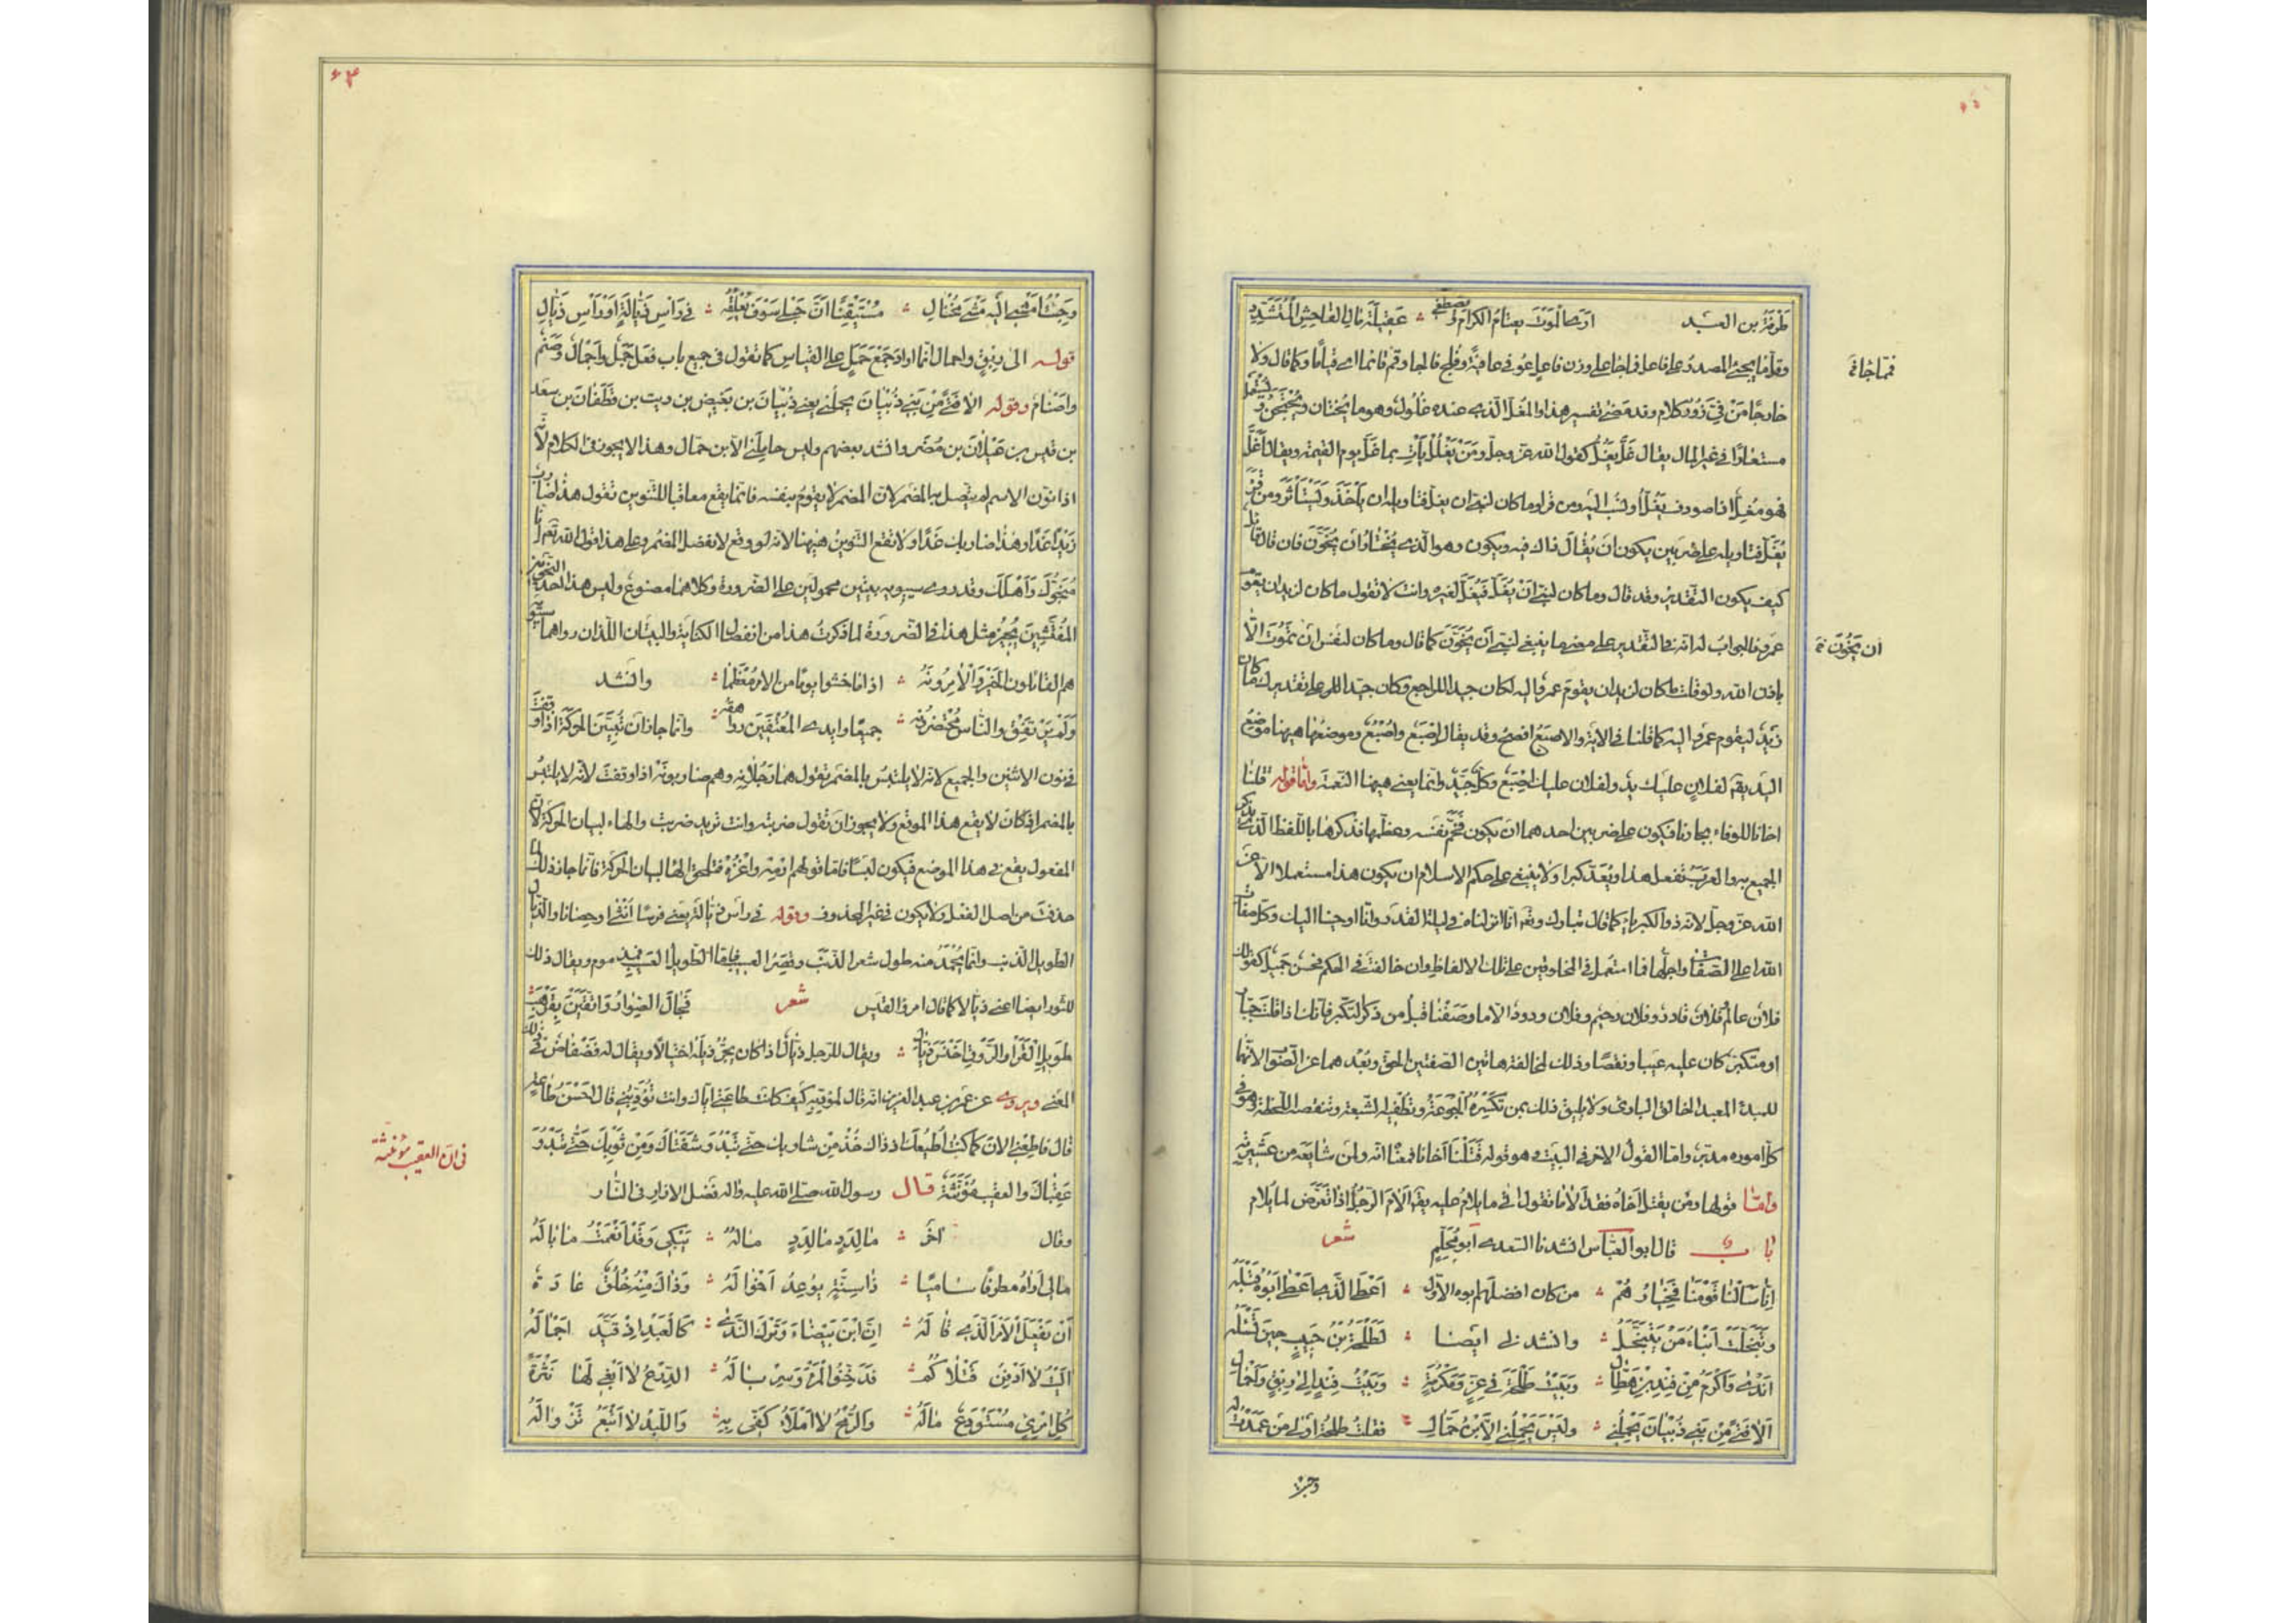 طرفة بن العبد ارى الموت يعتام الكرام ويصطفي عقيلة مال الفاحش المتشدد
وقلما يجئ المصدر على فاعل فما جاء على وزن فاعل عوفي عافية وفلج فالجا وقم قائما اى قياما وكما قال ولا
خارجا من في زور كلام وقد مضى تفسير هذا والمغل الذى عنده غلول وهو ما يختان ويحتجن ويستعمل
مستعارا في غير المال يقال غل يغل كقول الله عز وجل ومن يغلل يأت بما غل يوم القيمة ويقال اغل
فهو مغل اذا صودف يغل او نسب اليه ومن قرا وما كان لنبي ان يغل فتاويله ان يأخذ ويستأثر ومن قرأ
يغل فتاويله على ضربين يكون ان يقال ذاك فيه ويكون وهو الذى يختار ان يخون فان قال قائل
كيف يكون التقدير وقد قال وما كان لنبي ان يغل فيغل لغيره وانت لا تقول ما كان لزيد ان يقوم
عمرو فالجواب انه في التقدير على معنى ما ينبغي لنبي ان يخون كما قال وما كان لنفس ان تموت الا
باذن الله ولو قلت ما كان لزيد ان يقوم عمرو اليه لكان جيدا للراجع وكان جيدا للر على تقديرك ما كان
زيد ليقوم عمرو اليه كما قلنا في الاية والاصبع افصح وقد يقال اصبع واصبع وموضعها هيهنا موضع
اليد يقم لفلان عليك يد ولفلان عليك اصبع وكل جيد وانما يعنى هيهنا النعمة واما قوله قتلنا
اخانا للوفاء بجارنا فيكون على ضربين احدهما ان يكون فخم نفسه وعظمها فذكرها باللفظ الذى يذكر
الجميع به والعرب تفعل هذا ويعد كبرا ولا ينبغي على حكم الاسلام ان يكون هذا مستعملا الا عن
الله عز وجل لانه ذو الكبرياء كما قال تبارك وتعم انا انزلناه في ليلة القدر وانا اوحينا اليك وكل صفات
الله اعلى الصفات واجلها فما استعمل في المخلوقين على تلك الالفاظ وان خالفت في الحكم فحسن جميل كقولك
فلان عالم فلان قادر وفلان رحيم وفلان ودود الا ما وصفنا قبل من ذكر التكبر فانك اذا قلت جبار
او متكبر كان عليه عيبا ونقصا وذلك لمخالفة هاتين الصفتين الحق وبعدهما عن الصواب لانهما
للمبدئ المعيد الخالق البارئ ولا يليق ذلك بمن تكسره الجوعة وتطغيه الشبعة وتنقصه اللحظة وهو في
كل اموره مدبر واما القول الاخر في البيت وهو قوله قتلنا اخانا فمعناه انه ولمن شايعه من عشيرته
واما قولها ومن يقتل اخاه فقد الاما تقول اتى ما يلام عليه يقم الام الرجل اذا تعرض لما يلام
باب قال ابو العباس انشدنا السعدى ابو محلم شعر
انا سألنا قومنا فخيارهم من كان افضلهم ابوه الاول اعطى الذى اعطى ابوه قبله
وتبخلت ابناء من يتبخل وانشدني ايضا لطلحة بن حبيب حين قتله
اندى واكرم من فند بن هطال وبيت طلحة في عز ومكرمة وبيت فند الى ربق واحمال
الا فتى من بني ذبيان يحملني وليس يحملني الا ابن حمال فقلت طلحة اولى من عمدت له
وجئت
فما جاء
ان يخون
وجئت امشي اليه مشي مختال مستيقنا ان حبلي سوف يعلقه في رأس ذيالة او رأس ذيال
قوله الى ربق واحمال انما اراد جمع حمل على القياس كما تقول في جميع باب فعل حمل واحمال وصنم
واصنام وقوله الا فتى من بني ذبيان يحملني يعني ذبيان بن بغيض بن ريث بن غطفان بن سعد
بن قيس بن عيلان بن مضر وانشد بعضهم وليس حاملني الا ابن حمال وهذا لا يجوز في الكلام لأنه
اذا نون الاسم لم يتصل به المضمر لان المضمر لا يقوم بنفسه فانما يقع معاقبا للتنوين تقول هذا ضارب
زيدا غدا وهذا ضاربك غدا ولا تقع التنوين هيهنا لانه لو وقع لانفصل المضمر وعلى هذا قول الله تعم انا
منجوك واهلك وقد روى سيبويه بيتين محمولين على الضرورة وكلاهما مصنوع وليس هذا احد من النحويين
المفتشين يجيز مثل هذا في الضرورة لما ذكرت هذا من انفصال الكناية والبيتان اللذان رواهما سيبويه
هم القائلون الخير والامرونه اذا ما خشوا يوما من الامر معظما وانشد
ولم يرتفق والناس محتضرونه جميعا وايدى المعتفين رواهقه وانما جاز ان تبين الحركة اذا وقفت
في نون الاثنين والجميع لانه لا يلتبس بالمضمر تقول هما رجلانه وهم ضاربونه اذا وقفت لانه لا يلتبس
بالمضمر اذ كان لا يقع هذا الموقع ولا يجوز ان تقول ضربته وانت تريد ضربت والهاء لبيان الحركة لأن
المفعول يقع في هذا الموضع فيكون لبسا فاما قولهم ارمه واغزه فتلحق الهاء لبيان الحركة فانما جاز ذلك لما
حذفت من اصل الفعل ولا يكون في غير المحذوف وقوله في راس ذيالة يعني فرسا انثى او حصانا والذيال
الطويل الذنب وانما يحمد منه طول شعر الذنب وقصر العسيب فاما الطويل العسيب فمذموم ويقال ذلك
للثور ايضا اعني ذيالا كما قال امرؤ القيس شعر فجال الصوار واتقين بقرهب
طويل القرا والروق اخنس ذيال ويقال للرجل ذيال اذا كان يجر ذيله اختيالا ويقال له فضفاض في ذلك
المعنى ويروى عن عمر بن عبد العزيز انه قال لمؤدبه كيف كانت طاعتي اياك وانت تؤدبني قال احسن طاعة
قال فاطعني الان كما كنت اطيعك اذ ذاك خذ من شاربك حتى تبدو شفتاك ومن ثوبك حتى تبدو
عقباك والعقب مؤنثة قال رسول الله صلى الله عليه واله فضل الازار في النار
وقال اخر ما لدد ما لدد ماله يبكي وقد انعمت ما باله
مالي اراه مطرقا ساميا ذا سنة يوعد اخواله وذاك منه خلق عادة
ان يفعل الامر الذى قاله ان ابن بيضاء وترك الندى كالعبد اذ قيد اجماله
اليت لا ادفن قتلاكم فدخنوا المرء وسرباله الدرع لا ابغي لها نثرة
كل امرئ مستودع ماله والرمح لا املأ كفى به واللبد لا اتبع تزواله
في ان العقب مؤنثة